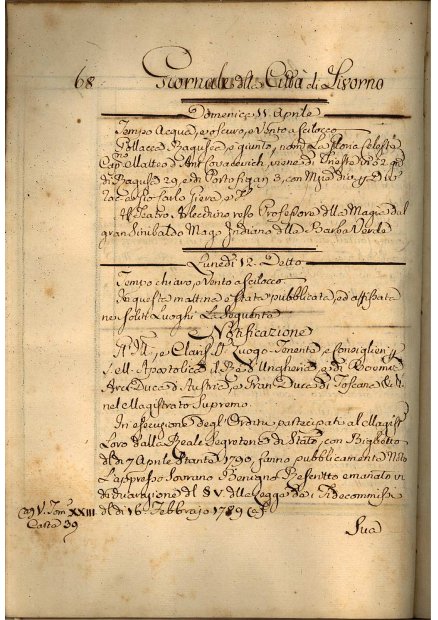 68 Giornale della Città di Livorno
Domenica 11 Aprile
Tempo Acqua, e oscuro, e Vento a Scilocco
Pollacca Ragusea è giunta, nom.ta La Gloria Celeste
Cap.no Matteo Ant. Covacevich, viene da Trieste in 52 gni
di Ragusa 29, e di Porto 3, con
e Fi
Al Teatro Arlecchino reso Professore della Magia dal
gran Sinibaldo Mago Indiano della Barba Verde
Lunedì 12. Detto
Tempo chiaro, e Vento a Scilocco.
In questa mattina è stata pubblicata, ed affissata
nei soliti Luoghi La Seguente
Notificazione
e Clariss. Luogo-Tenente, e Consiglieri
Apostolica d Re d'Ungheria, e di Boemia
Arci-Duca d'Austria, e Gran-Duca di Toscana
nel Magistrato Supremo.
In esecuzione degli Ordini partecipati al Magist.
Loro dalla Reale Segreteria di Stato, con Biglietto
del dì 7 Aprile Stante 1790, fanno pubblicamente Noto
L'appresso Sovrano Benigno Rescritto emanato in
dichiarazione del § V. della Legge dei Fidecommissi
del dì 16 Febbrajo 1789
V. Tom. XXIII
Carta 39
Sua